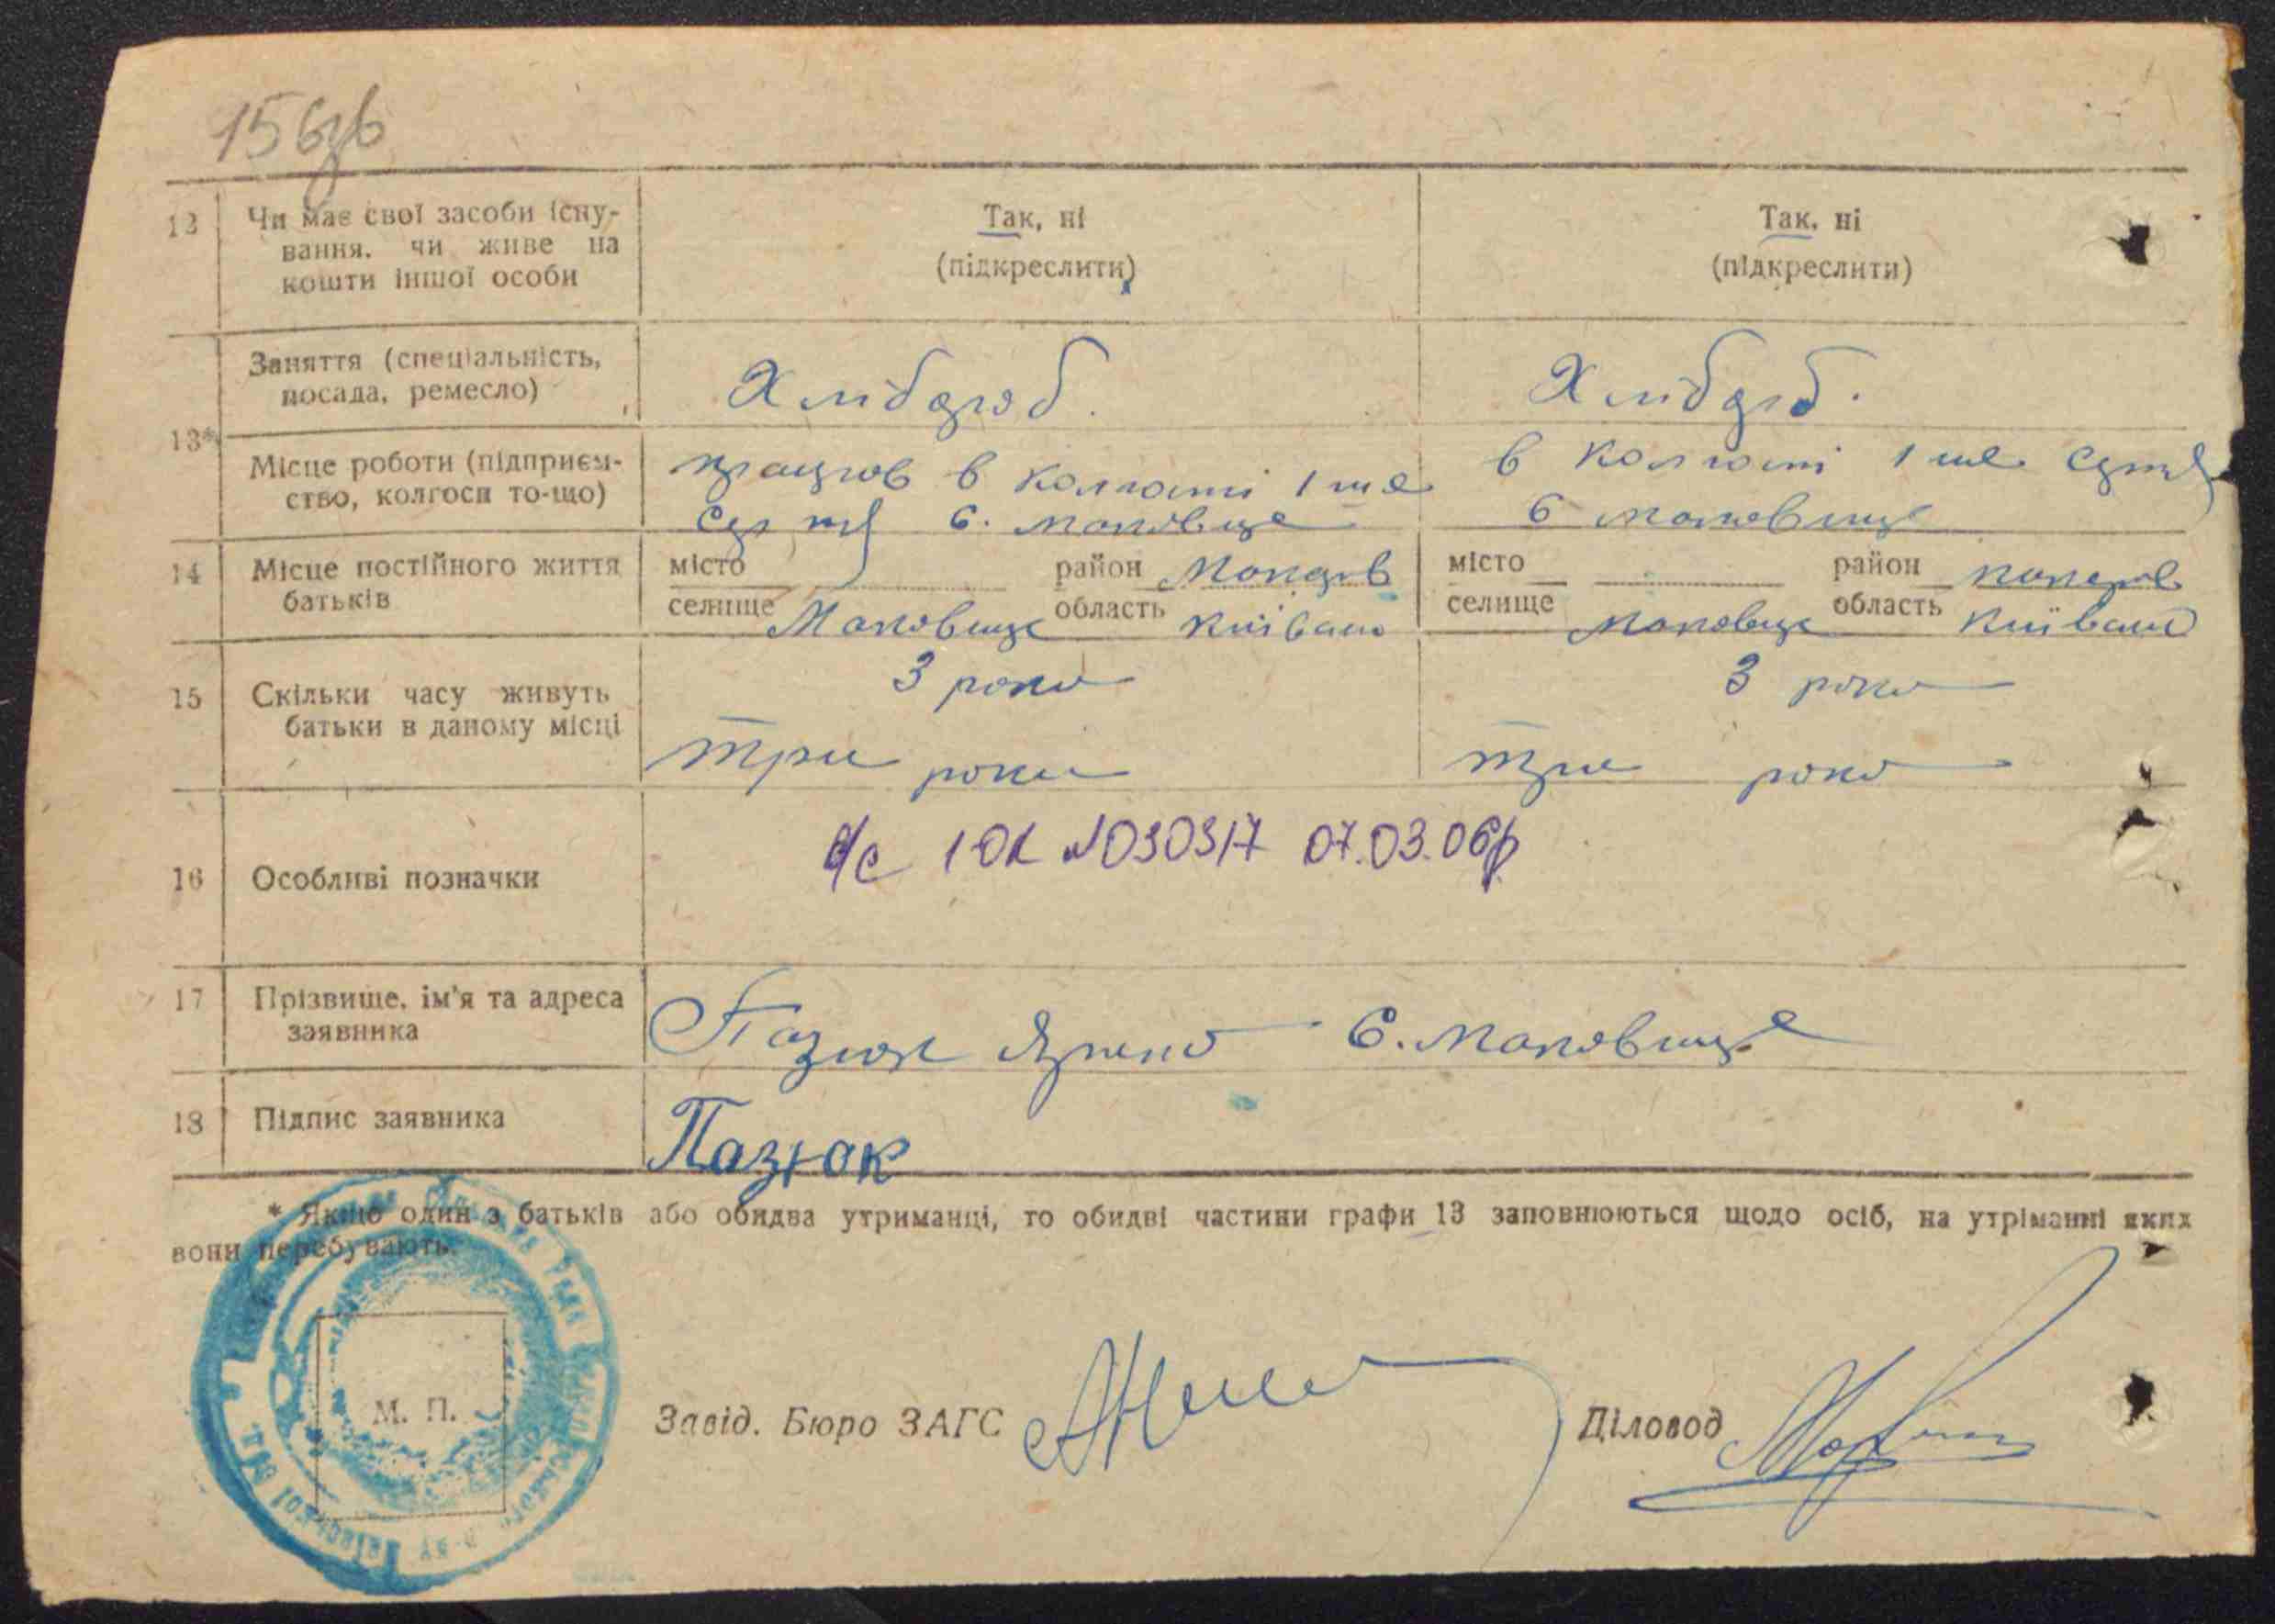 156зв
12 Чи має свої засоби існу-
вання, чи живе на
кошти іншої особи
Так, ні
(підкреслити)
Так, ні
(підкреслити)
13*
Заняття (спеціальність,
посада, ремесло)
Хлібороб.
Хлібороб.
Місце роботи (підприєм-
ство, колгосп то-що)
працюв в колгоспі 1 ше
серпня с. Маковище
в колгоспі 1 ше серпня
с Маковище
14 Місце постійного життя
батьків
місто район Макарів
селище Маковище область Київська
місто район Макарів
селище Маковище область Київська
15 Скільки часу живуть
батьки в даному місці
3 роки
три роки
3 роки
три роки
16 Особливі позначки
д/с 1-ОК №030317 07.03.06р
17 Прізвище, ім'я та адреса
заявника
Пазюк с. Маковище
18 Підпис заявника
Пазюк
* Якщо один з батьків або обидва утриманці, то обидві частини графи 13 заповнюються щодо осіб, на утріманні яких
вони перебувають.
М. П.
Завід. Бюро ЗАГС
Діловод